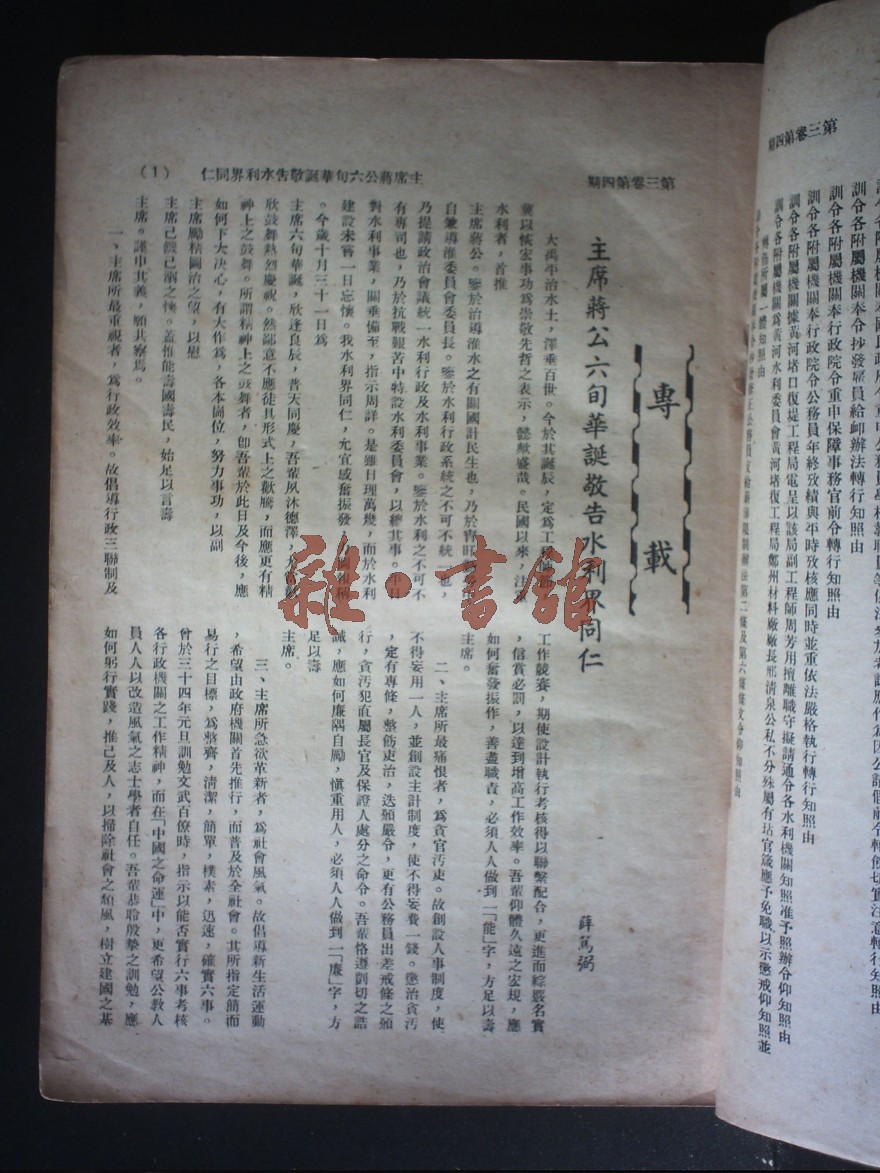 第三卷第四期
訓令各附屬機關奉令抄發雇員給卹辦法轉行知照由
訓令各附屬機關奉行政院令重申保障事務官前令轉行知照由
訓令各附屬機關奉行政院令公務員年終攷績與平時攷核應同時並重依法嚴格執行轉行知照由
訓令各附屬機關據黃河堵口復堤工程局電呈以該局副工程師周芳用擅離職守擬請通令各水利機關知照准予照辦令仰知照由
訓令各附屬機關為黃河水利委員會黃河堵復工程局鄭州材料廠廠長邢清泉公私不分殊屬有玷官箴應予免職以示懲戒仰知照並
轉飭所屬一體知照由
第三卷第四期
主席蔣公六旬華誕敬告水利界同仁
(1)
專載
主席蔣公六旬華誕敬告水利界同仁
薛篤弼
大禹平治水土，澤垂百世。今於其誕辰，定為工程師節，
冀以恢宏事功為崇敬先哲之表示，懿歟盛哉。民國以來，注重
水利者，首推
主席蔣公。鑒於治導淮水之有關國計民生也，乃於宵旰
自兼導淮委員會委員長。鑒於水利行政系統之不可不統一也，
乃提請政治會議統一水利行政及水利事業。鑒於水利之不可不
有專司也，乃於抗戰艱苦中特設水利委員會，以總其事。平日
對水利事業，關垂備至，指示周詳。是雖日理萬幾，而於水利
建設未嘗一日忘懷。我水利界同仁，尤宜感奮振發，
。今歲十月三十一日為
主席六旬華誕，欣逢良辰，普天同慶，吾輩夙沐德澤，
欣鼓舞熱烈慶祝。然鄙意不應徒具形式上之歡騰，而應更有精
神上之鼓舞。所謂精神上之鼓舞者，卽吾輩於此日及今後，應
如何下大決心，有大作為，各本崗位，努力事功，以副
主席勵精圖治之望，以慰
主席己饑己溺之懷。蓋惟能壽國壽民，始足以言壽
主席。謹申其義，願共察焉。
一、主席所最重視者，為行政效率。故倡導行政三聯制及
工作競賽，期使設計執行考核得以聯繫配合，更進而綜覈名實
，信賞必罰，以達到增高工作效率。吾輩仰體久遠之宏規，應
如何奮發振作，善盡職責，必須人人做到一「能」字，方足以壽
主席。
二、主席所最痛恨者，為貪官汚吏。故創設人事制度，使
不得妄用一人，並創設主計制度，使不得妄費一錢。懲治貪汚
，定有專條，整飭吏治，迭頒嚴令，更有公務員出差戒條之頒
行，貪汚犯直屬長官及保證人處分之命令。吾輩恪遵剴切之誥
誡，應如何廉隅自勵，愼重用人，必須人人做到一「廉」字，方
足以壽
主席。
三、主席所急欲革新者，為社會風氣。故倡導新生活運動
，希望由政府機關首先推行，而普及於全社會。其所指定簡而
易行之目標，為整齊，淸潔，簡單，樸素，迅速，確實六事。
曾於三十四年元旦訓勉文武百僚時，指示以能否實行六事考核
各行政機關之工作精神，而在「中國之命運」中，更希望公敎人
員人人以改造風氣之志士學者自任。吾輩恭聆殷摯之訓勉，應
如何躬行實踐，推己及人，以掃除社會之頹風，樹立建國之基
雜·書館